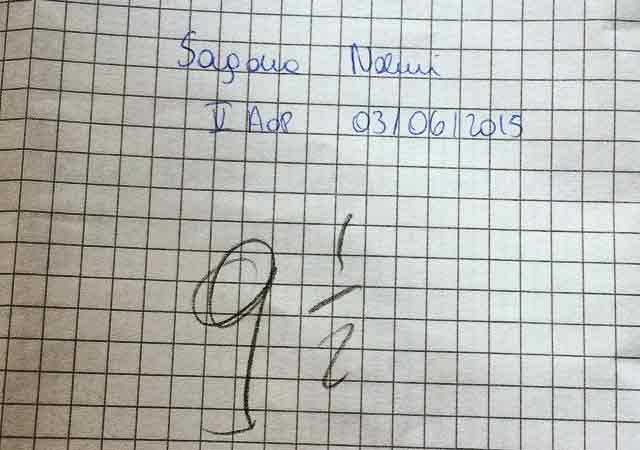 Sagona Noemi
V AdP 03/06/2015
9 1/2